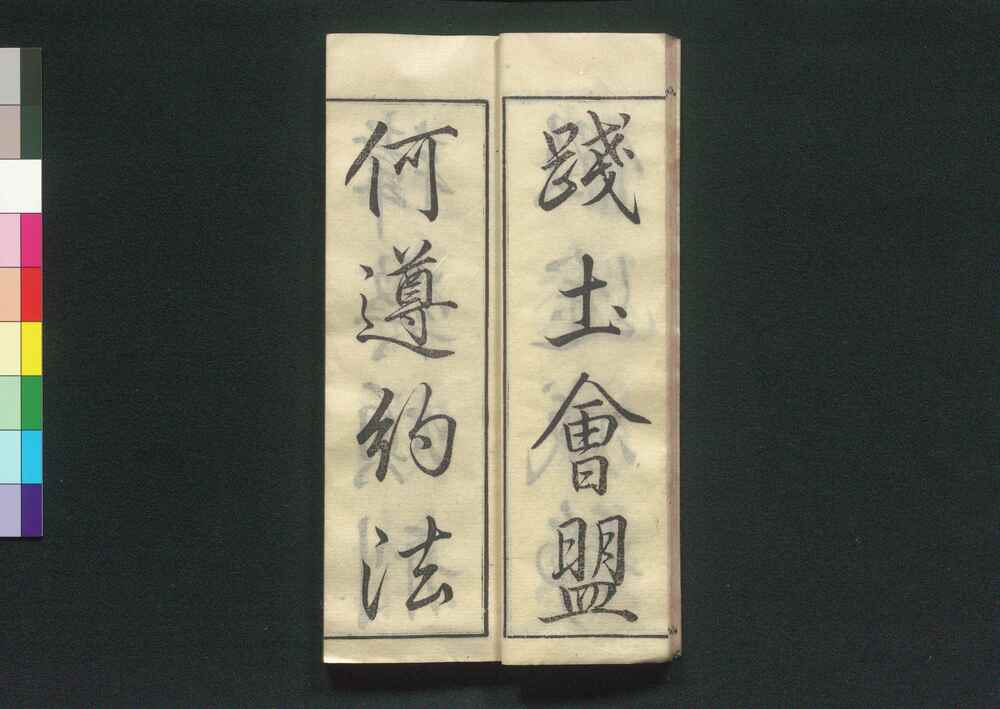 踐土會盟
何遵約法